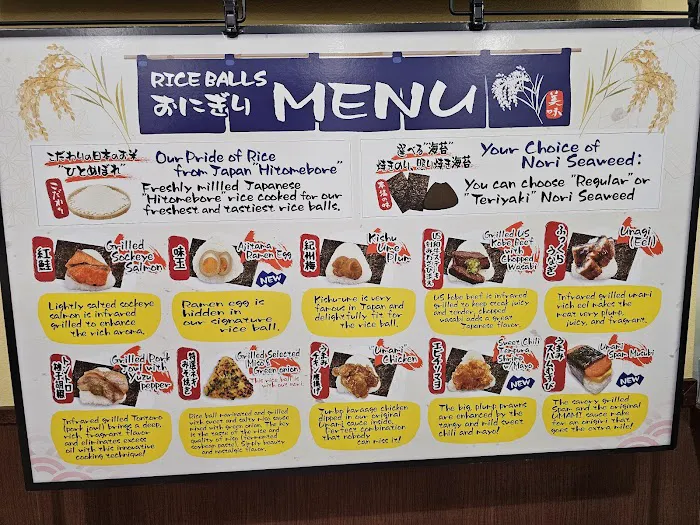 RICE BALLS
おにぎり
MENU
美味
こだわりの日本のお米
"ひとめぼれ"
こだわり
Our Pride of Rice
from Japan "Hitomebore"
Freshly millled Japanese
"Hitomebore" rice cooked for our
freshest and tastiest rice balls.
選べる"海苔"
焼きのり、照り焼き海苔
Your Choice of
Nori Seaweed:
You can choose "Regular" or
"Teriyaki" Nori Seaweed
紅鮭
Grilled
Sockeye
Salmon
Lightly salted sockeye
salmon is infrared
grilled to enhance
the rich aroma.
味玉
Ajitama
Ramen Egg
NEW
Ramen egg is
hidden in
our signature
rice ball.
紀州梅
Kishu
Ume
Plum
Kishu-ume is very
famous in Japan and
delightfully fit for
the rice ball.
Grilled US
Kobe Beef
with
Chopped
Wasabi
US kobe beef is infrared
grilled to keep steak juicy
and tender, chopped
wasabi adds a great
Japanese flavor.
ふっくら
うなぎ
Unagi
(Eel)
Infrared grilled umami
rich eel makes the
meat very plump,
juicy, and fragrant.
トントロ
柚子胡椒
Grilled Pork
Jowl with
Yuzu
pepper
Infrared grilled Tontoro
(pork jowl) brings a deep,
rich, fragrant flavor
and eliminates excess
oil with this innovative
cooking technique!
Grilled Selected
Miso &
Green onion
This rice ball is
with out nori.
Rice ball marinated and grilled
with sweet and salty miso sauce
mixed with green onion. The key
is the taste of the rice and
quality of miso (fermented
soybean paste). Simply beauty
and nostalgic flavor.
うまみ
チキン唐揚げ
Umami
Chicken
Jumbo karaage chicken
dipped in our original
Umami sauce inside.
Perfect combination
that nobody
can miss it!
エビチリマヨ
Sweet Chili
Tempura
Shrimp/Mayo
NEW
The big plump prawns
are enhanced by the
tangy and mild sweet
chili and mayo!
うまみ
スパムむすび
Umami
Spam Musubi
NEW
The savory grilled
Spam and the original
UMAMI sauce make
for an onigiri that
goes the extra mile!